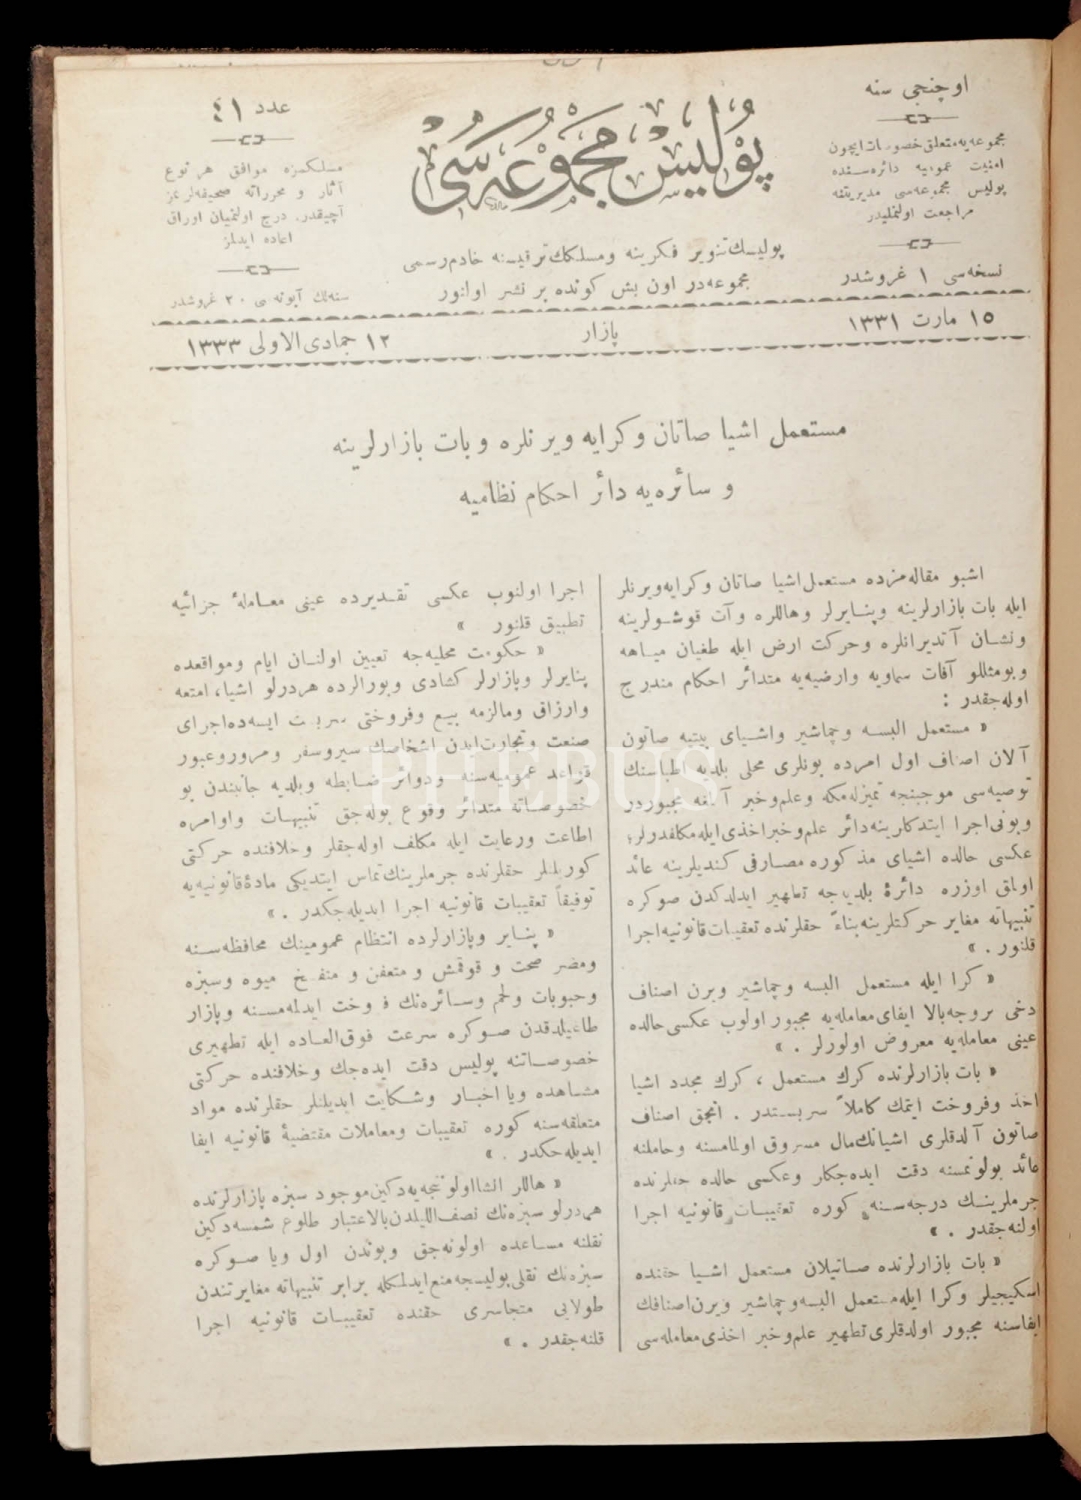 اوچنجی سنه
مجموعه‌یه متعلق خصوصات ایچون
امنیت عمومیه دائره‌سنده
پولیس مجموعه‌سی مدیریتنه
مراجعت اولنملیدر
نسخه‌سی ١ غروشدر
پولیس مجموعه‌سی
پولیسك تنویر فكرینه ومسلكك ترقیسنه خادم رسمی
مجموعه‌در اون بش كونده بر نشر اولنور
عدد ٤١
مسلكمزه موافق هر نوع
آثار و محرراته صحیفه‌لرمز
آچیقدر. درج اولنمیان اوراق
اعاده ایدلمز
سنه‌لك آبونه سی ٢٠ غروشدر
١٥ مارت ١٣٣١
پازار
١٢ جمادی الاولی ١٣٣٣
مستعمل اشیا صاتان وكرایه ویرنلره وبات بازارلرینه
و سائره‌یه دائر احكام نظامیه
اشبو مقاله‌مزده مستعمل اشیا صاتان وكرایه ویرنلر
ایله بات بازارلرینه وپنایرلر وهاللره وآت قوشولرینه
ونشان آتدیرانلره وحركت ارض ایله طغیان میاهه
وبومثللو آفات سماویه وارضیه‌یه متدائر احكام مندرج
اوله‌جقدر :
« مستعمل البسه وچماشیر واشیای بیتیه صاتون
آلان اصناف اول امرده بونلری محلی بلدیه اطباسنك
توصیه‌سی موجبنجه تمیزله‌مكه وعلم وخبر آلمغه مجبوردر
وبونی اجرا ایتدكلرینه دائر علم وخبر اخذی ایله مكلفدرلر؛
عكسی حالده اشیای مذكوره مصارفی كندیلرینه عائد
اولمق اوزره دائرۀ بلدیه‌جه تطهیر ایدلدكدن صوكره
تنبیهاته مغایر حركتلرینه بناءً حقلرنده تعقیبات قانونیه اجرا
قلنور . »
« كرا ایله مستعمل البسه وچماشیر ویرن اصناف
دخی بروجه بالا ایفای معامله‌یه مجبور اولوب عكسی حالده
عینی معامله‌یه معروض اولورلر . »
« بات بازارلرنده كرك مستعمل ، كرك مجدد اشیا
اخذ وفروخت ایتمك كاملاً سربستدر . انجق اصناف
صاتون آلدقلری اشیانك مال مسروق اولمامسنه وحاملنه
عائد بولونمسنه دقت ایده‌جكلر وعكسی حالده حقلرنده
جرملرینك درجه‌سنه كوره تعقیبات قانونیه اجرا
اولنه‌جقدر . »
« بات بازارلرنده صاتیلان مستعمل اشیا حقنده
اسكیجیلر وكرا ایله مستعمل البسه وچماشیر ویرن اصنافك
ایفاسنه مجبور اولدقلری تطهیر علم وخبر اخذی معامله‌سی
اجرا اولنوب عكسی تقدیرده عینی معاملۀ جزائیه
تطبیق قلنور »
« حكومت محلیه‌جه تعیین اولنان ایام ومواقعده
پنایرلر وپازارلر كشادی وبورالرده هردرلو اشیا، امتعه
وارزاق ومالزمه بیع وفروختی سربست ایسه‌ده اجرای
صنعت وتجارت ایدن اشخاصك سیروسفر ومروروعبور
قواعد عمومیه‌سنه ودوائر ضابطه وبلدیه جانبندن بو
خصوصاته متدائر وقوع بوله‌جق تنبیهات واوامره
اطاعت ورعایت ایله مكلف اوله‌جقلر وخلافنده حركتی
كوریلنلر حقلرنده جرملرینك تماس ایتدیكی مادۀ قانونیه‌یه
توفیقاً تعقیبات قانونیه اجرا ایدیله‌جكدر . »
« پنایر وپازارلرده انتظام عمومینك محافظه‌سنه
ومضر صحت و قوقمش و متعفن و منفسخ میوه وسبزه
وحبوبات ولحم وسائره‌نك فروخت ایدلمه‌مسنه وپازار
طاغیلدقدن صوكره سرعت فوق العاده ایله تطهیری
خصوصاتنه پولیس دقت ایده‌جك وخلافنده حركتی
مشاهده ویا اخبار وشكایت ایدیلنلر حقلرنده مواد
متعلقه‌سنه كوره تعقیبات ومعاملات مقتضیۀ قانونیه ایفا
ایدیله‌جكدر . »
« هاللر انشا اولونجه‌یه دكین موجود سبزه پازارلرنده
هردرلو سبزه‌نك نصف اللیلدن بالاعتبار طلوع شمسه دكین
نقلنه مساعده اولونه‌جق وبوندن اول ویا صوكره
سبزه‌نك نقلی پولیسجه منع ایدلمكله برابر تنبیهاته مغایرتندن
طولایی متجاسری حقنده تعقیبات قانونیه اجرا
قلنه‌جقدر . »
PHEBUS